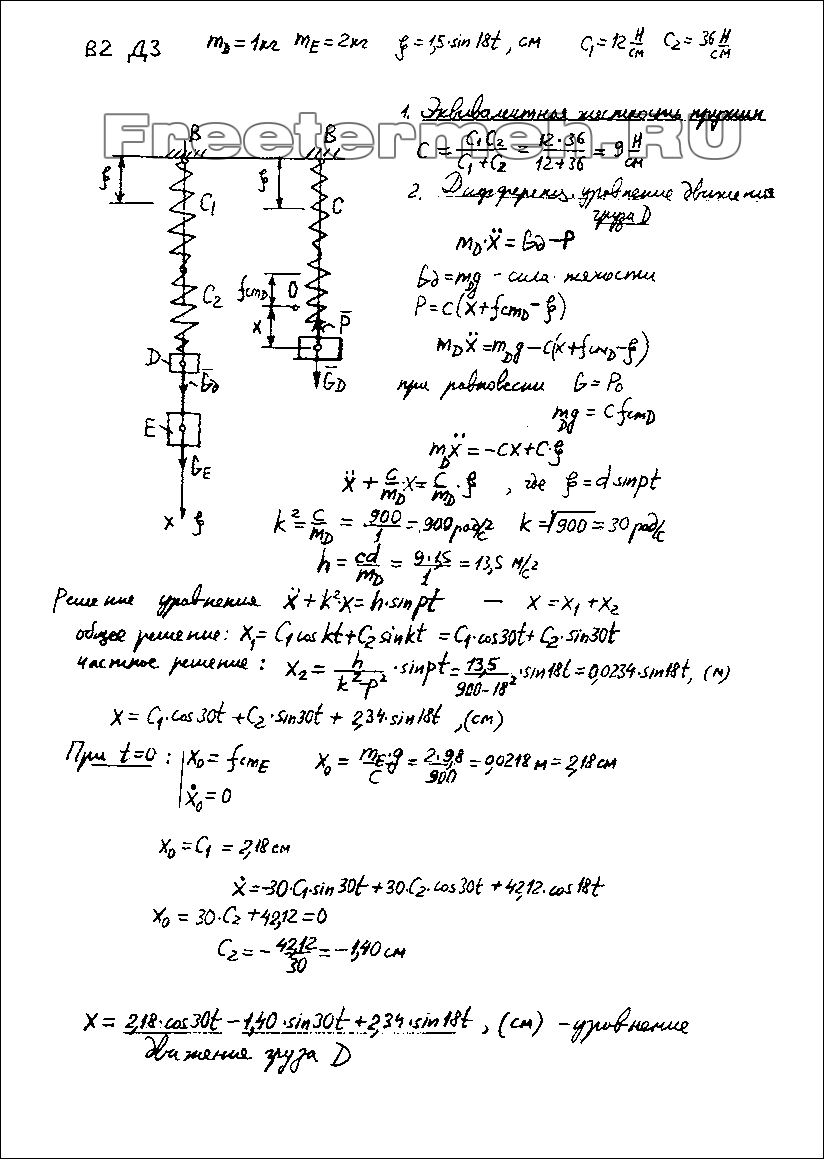 В2 Д3 m_D = 1кг m_E = 2кг ξ = 1,5·sin18t, см C₁ = 12 Н/см C₂ = 36 Н/см
1. Эквивалентная жесткость пружин
Freetermen.RU
C = C₁C₂/(C₁+C₂) = 12·36/(12+36) = 9 Н/см
2. Дифференц. уравнение движения
груза D
m_D·ẍ = G_D − P
G_D = m_D g - сила тяжести
P = c(x + f_стD − ξ)
m_D ẍ = m_D g − c(x + f_стD − ξ)
при равновесии G = P₀
m_D g = C f_стD
m_D ẍ = −cx + c·ξ
ẍ + C/m_D·x = C/m_D·ξ , где ξ = d sinpt
k² = C/m_D = 900/1 = 900 рад/с² k = √900 = 30 рад/с
h = cd/m_D = 9·1,5/1 = 13,5 м/с²
Решение уравнения ẍ + k²·x = h·sinpt — x = x₁ + x₂
общее решение: x₁ = C₁coskt + C₂sinkt = C₁·cos30t + C₂·sin30t
частное решение: x₂ = h/(k²−p²)·sinpt = 13,5/(900−18²)·sin18t = 0,0234·sin18t, (м)
x = C₁·cos30t + C₂·sin30t + 2,34·sin18t, (см)
При t=0 : x₀ = f_стE x₀ = m_E·g/C = 2·9,8/900 = 0,0218 м = 2,18 см
ẋ₀ = 0
x₀ = C₁ = 2,18 см
ẋ = −30·C₁·sin30t + 30·C₂·cos30t + 42,12·cos18t
x₀ = 30·C₂ + 42,12 = 0
C₂ = −42,12/30 = −1,40 см
x = 2,18·cos30t − 1,40·sin30t + 2,34·sin18t, (см) - уравнение
движения груза D
B
B
ξ
ξ
C₁
C
C₂
f_стD
O
x
P̄
D
Ḡ_D
Ḡ_D
E
Ḡ_E
x ξ